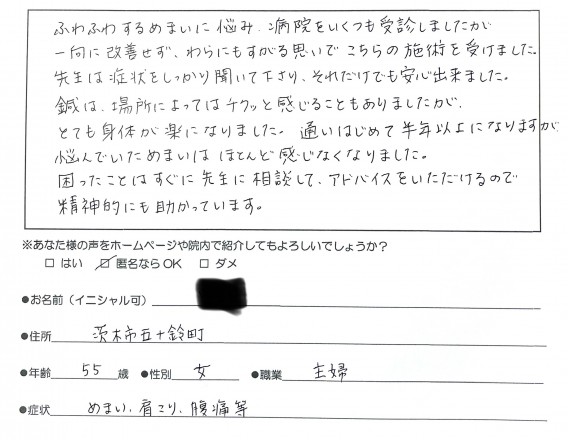 ふわふわするめまいに悩み、病院をいくつも受診しましたが
一向に改善せず、わらにもすがる思いでこちらの施術を受けました。
先生は症状をしっかり聞いて下さり、それだけでも安心出来ました。
鍼は、場所によってはチクッと感じることもありましたが、
とても身体が楽になりました。通いはじめて半年以上になりますが
悩んでいためまいはほとんど感じなくなりました。
困ったことはすぐに先生に相談して、アドバイスをいただけるので
精神的にも助かっています。
※あなた様の声をホームページや院内で紹介してもよろしいでしょうか？
□ はい ☑ 匿名なら OK □ ダメ
●お名前（イニシャル可）
●住所 茨木市五十鈴町
●年齢 55 歳 ●性別 女 ●職業 主婦
●症状 めまい、肩こり、腹痛等